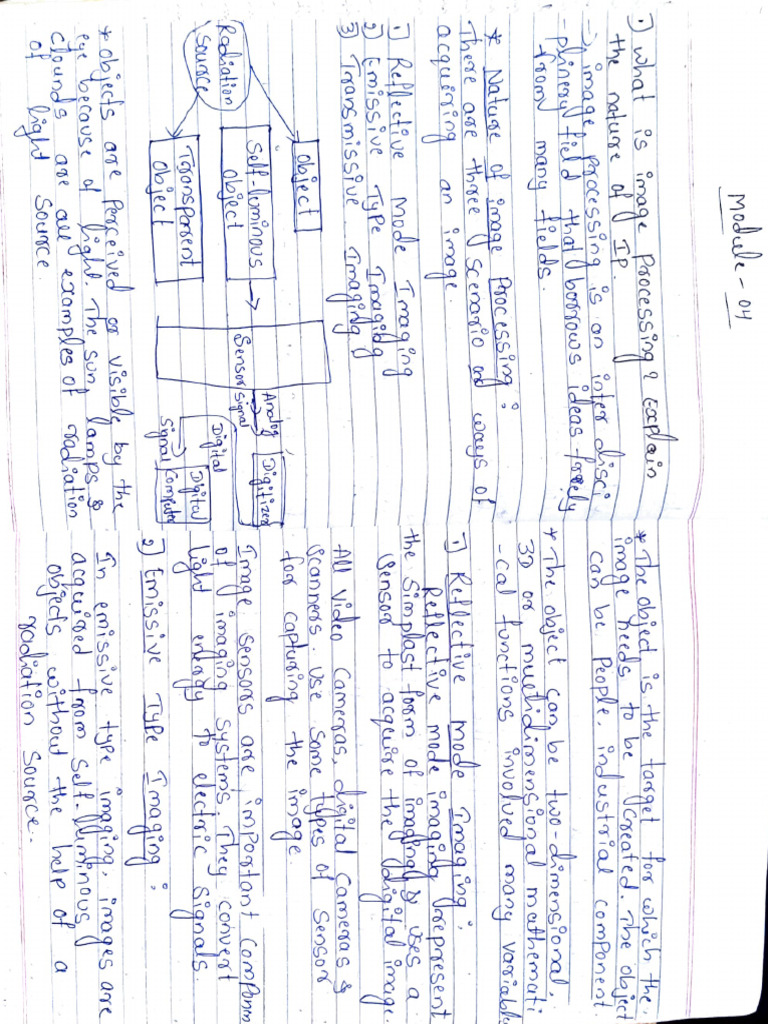 Module - 04
1) What is image processing? Explain
the nature of IP.
→ image processing is an inter disci
-plinery field that borrows ideas freely
from many fields.
* Nature of image processing :
There are three scenario or ways of
acquiring an image.
1) Reflective Mode Imaging
2) Emissive Type Imaging
3) Transmissive Imaging
Radiation
Source
Object
Self-luminous
object
Transparent
object
Sensor
Analog
Signal
Digitizer
Digital
Signal
Digital
Computer
* objects are Perceived or visible by the
eye because of light. The sun, lamps &
clounds are all examples of radiation
of light source.
* The object is the target for which the
image needs to be created. The object
can be People, industrial component.
* The object can be two-dimensional,
3D or multidimensional mathemati
-cal functions involved many variable
1) Reflective mode Imaging :
Reflective mode imaging represent
the simplast form of imaging & uses a
sensor to acquire the digital image.
All video Cameras, digital Cameras &
Scanners. Use some types of sensor
for capturing the image.
Image sensors are important Compon
of imaging systems. They convert
light energy to electric signals.
2) Emissive Type Imaging :
In emissive type imaging, images are
acquired from self-luminous
objects without the help of a
radiation Source.